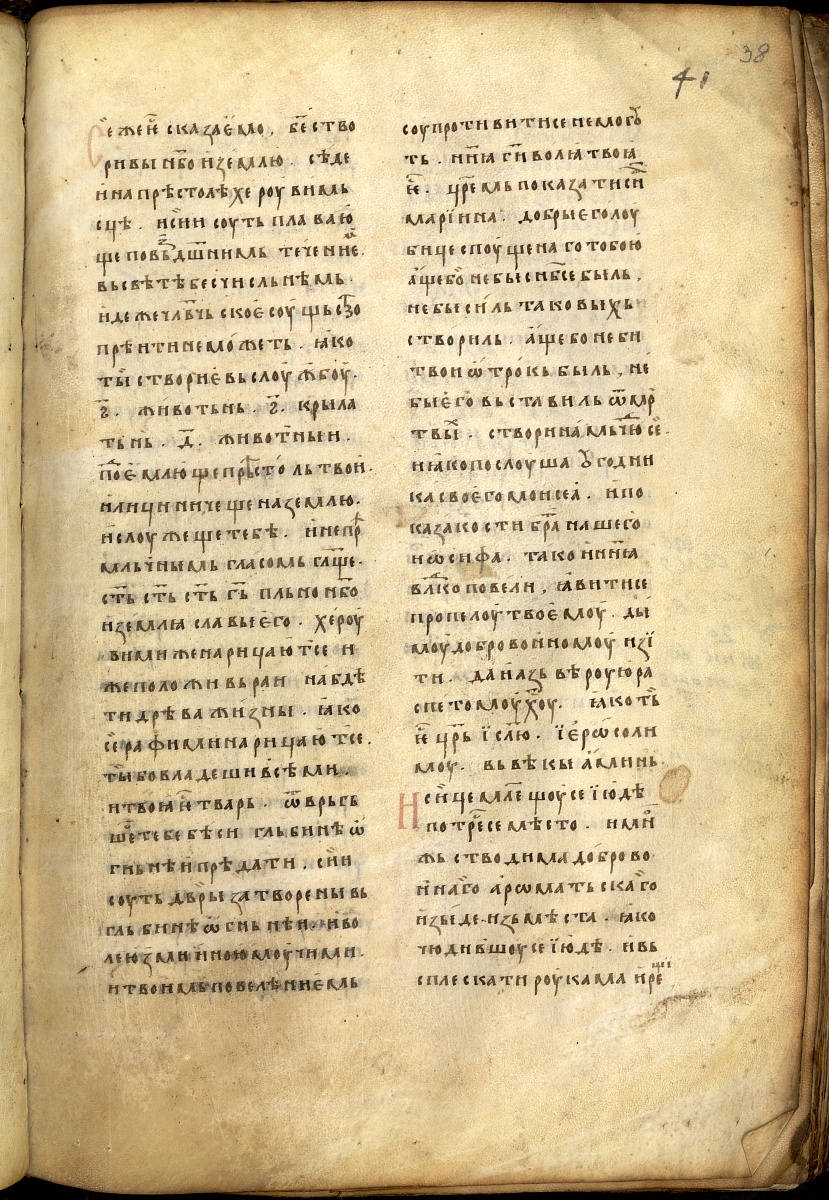 38
41
Се же ѥ҇ сказаемо, бе҇ ство
ривы нбо и землю. сѣде
и на прѣстолѣ хероувимь
сцѣ. и сии соуть плаваю
ще повъдшнимь течение.
вь свѣтѣ бесчисльнѣмь.
иде же члвчьское соущьство
прѣити не может. ꙗко
ты створие вь слоужбоу.
г҃. животьнь. г҃. крыла
тьнь. д҃. животныи.
поемлюще прѣстоль твои.
или ци ниче ще на землю.
и слоужеще тебѣ. и непрѣ
мльчнымь гласомь глще.
сть сть сть гь пльно нбо
и землꙗ славы его. хероу
вими же нарицают се и
же положи вь раи набдѣ
ти дрѣва жизны. ꙗко
серафими нарицают се.
ты бо владеши всѣми.
и твоꙗ ѥ҇ тварь. ѿврьгь
шее тебе бѣси гльбинѣ ѡ
гньнѣи прѣдати. сии
соуть двьры затворены вь
гльбинѣ ѡгньнѣи. и во
лею змиѥною моучими.
и твоимь повелѣниемь
соупротивити се не могоу
ть. ннꙗ ги волꙗ твоꙗ
ѥ҇. црѥмь показати сн
мариина. добрые голоу
бице споущена го тобою
аще бо не бы с нбсе быль,
не бы силь таковыхь
створиль. аще бо не би
твои ѡтрокь быль, не
бы его вьставиль ѿ мр
твы. створи намь чю се.
и ꙗко послоуша оугодни
ка своего моисеꙗ. и по
каза кости бра нашего
иѡсифа. тако и ннꙗ
влко повели, ꙗвити се
пропелоу твоемоу. ды
моу доброво ином оу изї
ти. да и азь вѣроую ра
спетомоу хоу. ꙗко ты
ѥ҇ црь ї слю. їерѡсоли
моу. вь вѣкы аминь.
И сице млещоу се їюдѣ
потресе мѣсто. и мни
жьство дима доброво
инаго арѡматьскаго
изыде изь мѣста. ꙗко
чюдившоу се їюдѣ. и вь
сплескати роукама и рещи